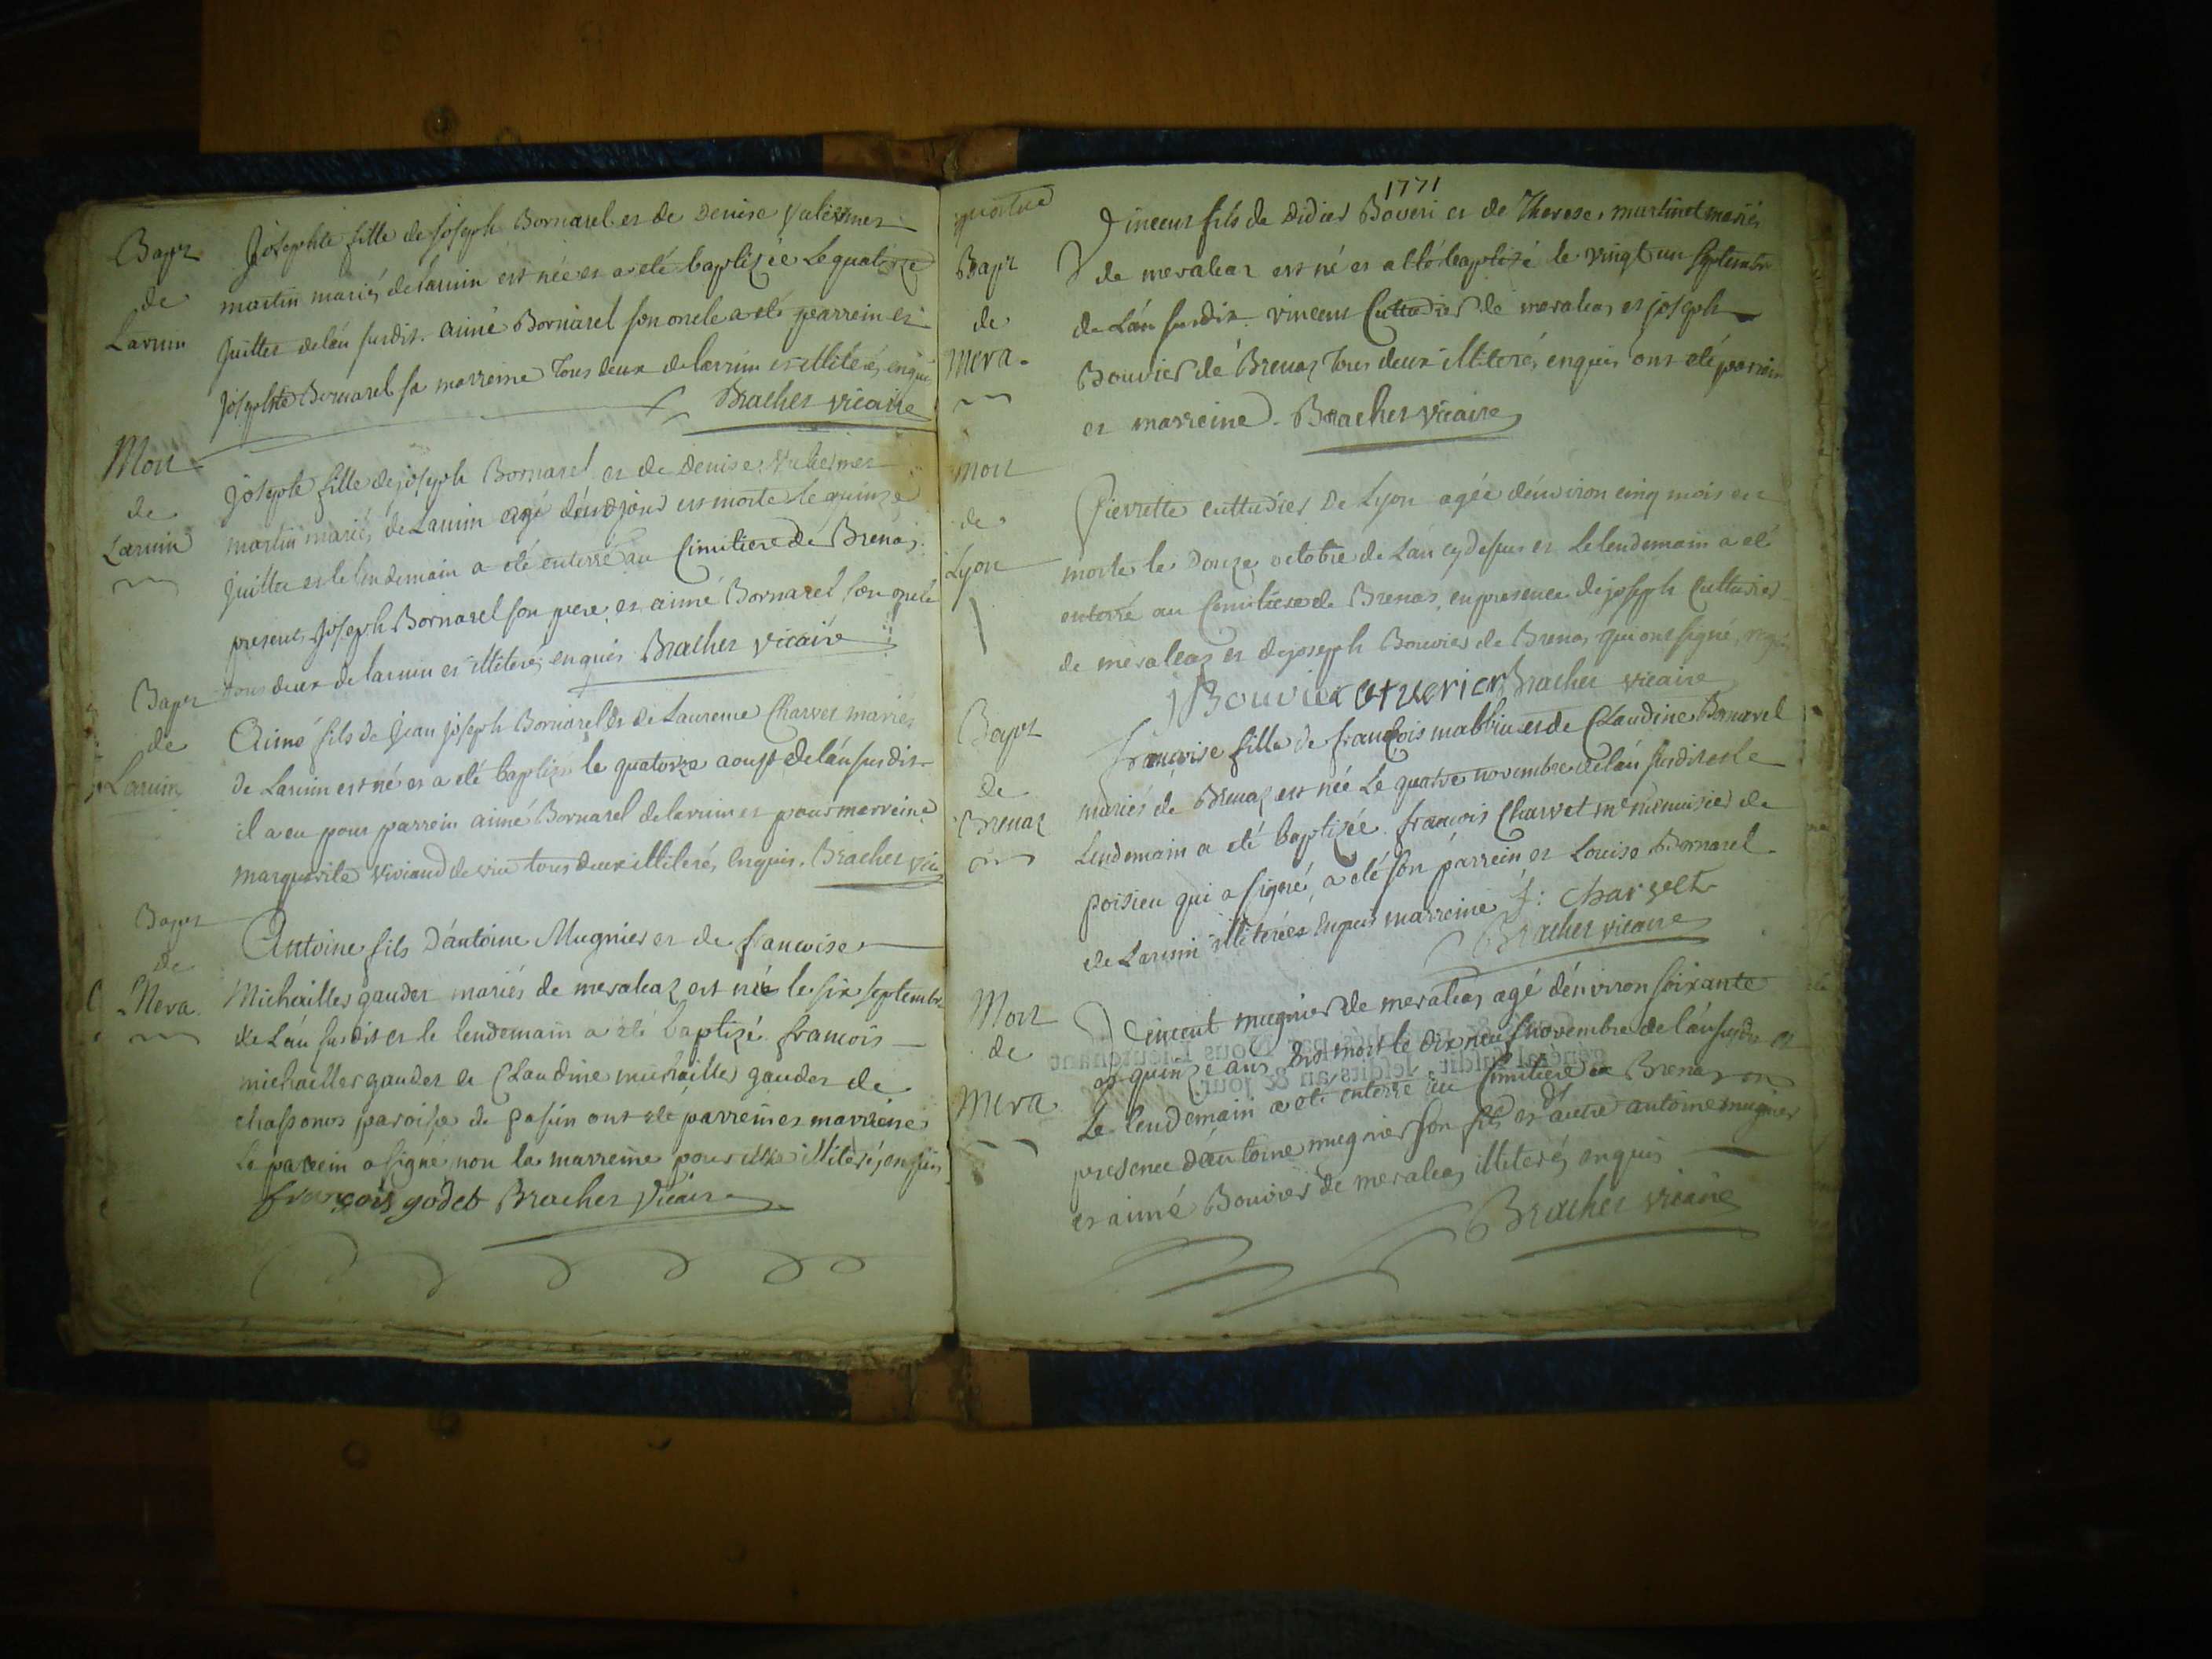 Bapt
de
Larnin
Josephte fille de Joseph Bornarel et de Denise
martin mariés de larnin est née et a eté baptizée Le quatorze
Juillet de lán susdit. aimé Bornarel son oncle a eté parrein et
josephte Bornarel sa marreine tous deux de larnin et illiterés enquis
Bracher vicaire
Mort
de
Larnin
josepte fille de joseph Bornarel et de Denise
martin mariés de Larnin agé d'un jour est morte le quinze
juillet et le lendemain a eté enterré au Cimitiere de Brenas
present Joseph Bornarel son pere et aimé Bornarel son oncle
tous deux de larnin et illiterés enquis Bracher vicaire
Bapt
de
Larnin
Aimé fils de Jean joseph Bornarel et de Laurence Charvet mariés
de Larnin est né et a eté baptizé le quatorze aoust de lán susdit
il a eu pour parrein aimé Bornarel de larnin et pour marreine
marguerite Viviand de tous deux illiterés Enquis. Bracher vic
Bapt
de
Mera.
Antoine fils D'antoine Mugnier et de francoise
Michailles gaudet mariés de meraleaz est né le six septembre
de Lán susdit et le lendemain a eté baptizé francois
michailles gaudet et Claudine michailles gaudet de
chassonos paroisse de Passin ont eté parrein et marreine
Le parrein a signé non la marreine pour etre illiteré enquis
françois godet Bracher Vicaire
1771
Bapt
de
Mera.
Vincent fils de Didier Boveri et de Therese martinet mariés
de meraleaz est né et a eté baptizé le vingt un septembre
de Lán susdit. vincent Cuttudier de meraleas et joseph
Bouvier de Brenaz tous deux illiterés enquis ont eté parrein
et marreine. Bracher Vicaire
Mort
de
Lyon
Pierrette cuttudier De Lyon agée d'environ cinq mois est
morte le Douze octobre de Lán cydessus et Le lendemain a eté
enterré au Cimitiere de Brenas, en presence de joseph Cuttudier
de meraleaz et de joseph Bouvier de Brenas qui ont signé
j Bouvier Bracher vicaire
Bapt
de
Brenaz
francoise fille de francois mabbiu et de Claudine Bornarel
mariés de Brenaz est née Le quatre novembre de lán susdit et le
Lendemain a eté baptizée. francois Charvet me menuisier de
poisieu qui a signé, a eté son parrein et Louise Bornarel
de Larnin illiterées Enquis marreine f: charvet
Bracher vicaire
Mort
de
Mera
Vincent mugnier de meraleas agé d'environ soixante
et quinze ans Est mort le dix neuf novembre de lán susdit et
Le lendemain a eté enterré au Cimitiere de Brenaz en
presence d'antoine mugnier son fils et d'autre antoine mugnier
et aimé Bouvier de meraleas illiterés enquis
Bracher vicaire